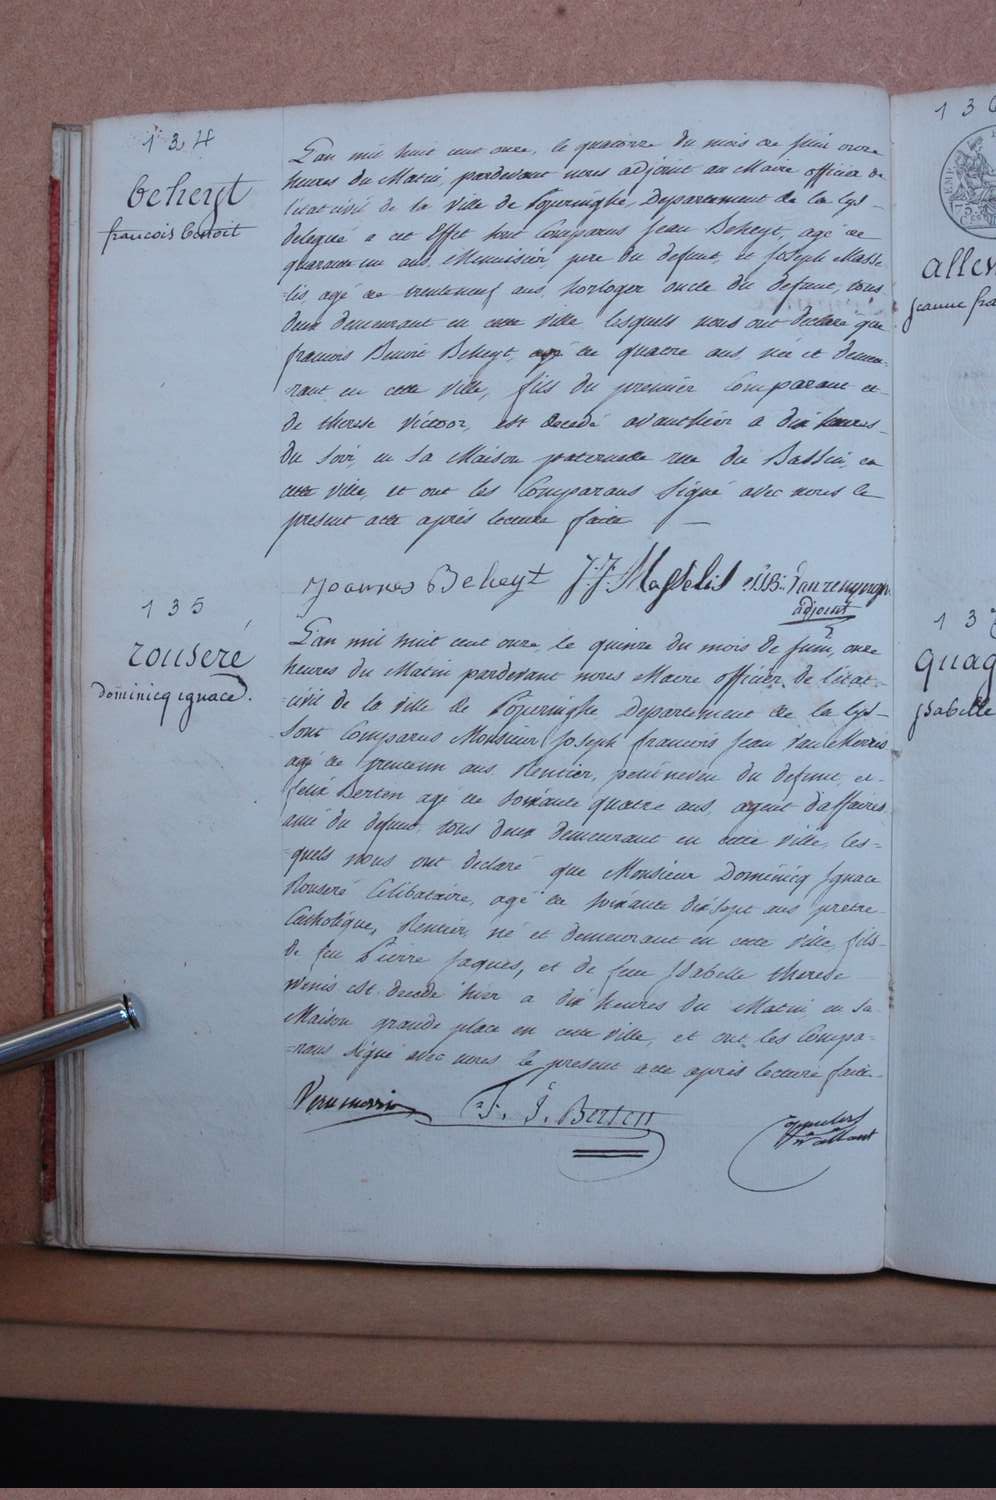 134
beheyt
francois benoit
L'an mil huit cent onze, le quatorze du mois de juin onze
heures du Matin, pardevant nous adjoint au Maire officier de
l'etat civil de la ville de Poperinghe, Departement de la Lys -
delegué a cet Effet sont Comparus Jean Beheyt, agé de
quarante un ans, Menuisier, pere du defunt, et Joseph Masse
=lis, agé de trenteneuf ans, horloger oncle du defunt, tous
deux demeurant en cette ville lesquels nous ont declaré que
francois Benoit Beheyt, agé de quatre ans, né et demeu-
-rant en cette ville, fils du premier Comparant et
de therese Victoor, est decedé avanthier a dix heures -
du soir, en sa Maison paternelle rue du Bassin, en
cette ville, et ont les Comparans signé avec nous le
present acte après lecture faite —
Joannes Beheyt J. J. Masselis
adjoint
135
rouseré
dominicq ignace.
L'an mil huit cent onze, le quinze du mois de juin, onze
heures du Matin pardevant nous Maire officier de l'etat -
=civil de la ville de Poperinghe Departement de la Lys -
sont Comparus Monsieur Joseph francois Jean Van Merris
agé de trenteun ans, Rentier, petit neveu du defunt, et -
felix Berten agé de soixante quatre ans, agent d'affaires,
ami du defunt, tous deux demeurant en cette ville, les=
=quels nous ont declaré que Monsieur Dominicq Ignace
Rouseré Celibataire, agé de soixante dixsept ans pretre -
Catholique, Rentier, né et demeurant en cette ville, fils -
de feu Pierre Jaques, et de feue Isabelle therese
Wenis est decedé hier a dix heures du Matin, en sa -
Maison grande place en cette ville, et ont les Compa=
=rans signé avec nous le present acte après lecture faite -
F. J. Berten
136
allen
jeanne fra
137
quag
isabelle